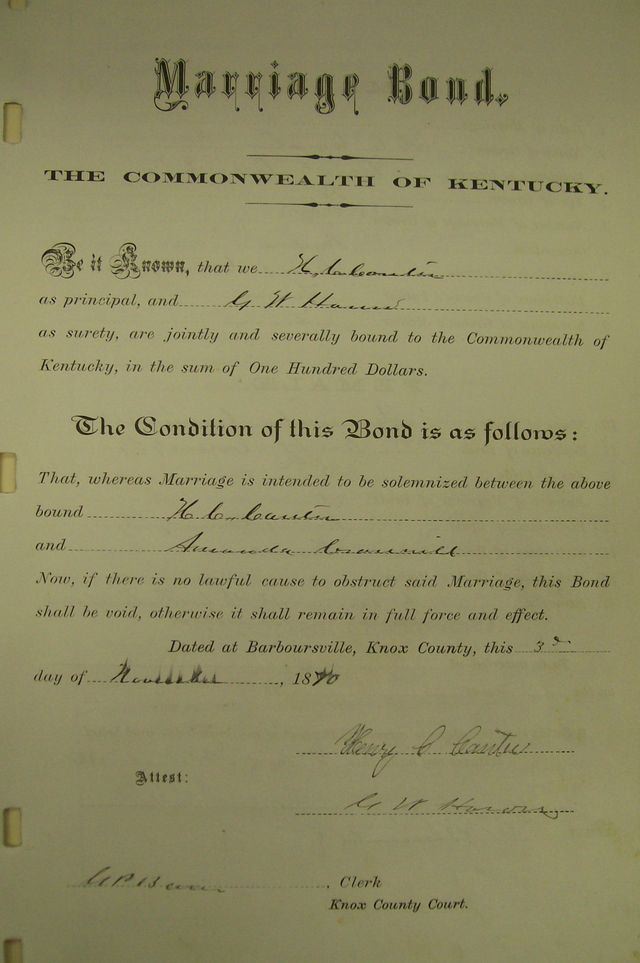 Marriage Bond.
THE COMMONWEALTH OF KENTUCKY.
Be it Known, that we H. C. Cauter
as principal, and G W
as surety, are jointly and severally bound to the Commonwealth of
Kentucky, in the sum of One Hundred Dollars.
The Condition of this Bond is as follows:
That, whereas Marriage is intended to be solemnized between the above
bound H. C. Cauter
and Amanda
Now, if there is no lawful cause to obstruct said Marriage, this Bond
shall be void, otherwise it shall remain in full force and effect.
Dated at Barboursville, Knox County, this 3d
day of November, 18
Henry C
Attest:
G W
, Clerk
Knox County Court.